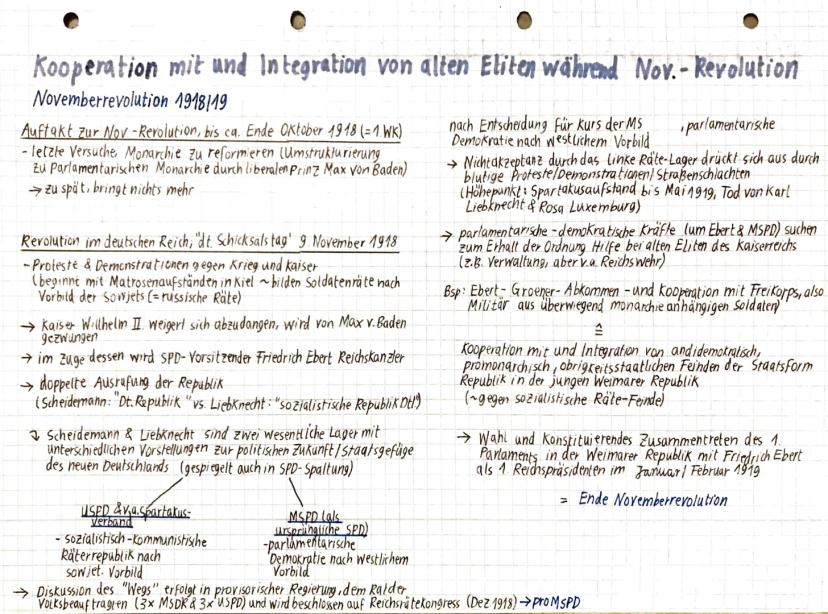 Kooperation mit und Integration von alten Eliten während Nov.-Revolution
Novemberrevolution 1918/19
Auftakt zur Nov-Revolution, bis ca. Ende Oktober 1918 (=1.WK)
- letzte Versuche, Monarchie zu reformieren (Umstrukturierung
zu Parlamentarischen Monarchie durch liberalen Prinz Max von Baden)
→ zu spät, bringt nichts mehr
Revolution im deutschen Reich, "dt. Schicksalstag" 9. November 1918
- Proteste & Demonstrationen gegen Krieg und Kaiser
(beginnt mit Matrosenaufständen in Kiel ~ bilden Soldatenräte nach
Vorbild der Sowjets (= russische Räte)
→ Kaiser Willhelm II. weigert sich abzudangen, wird von Max v. Baden
gezwungen
→ im Zuge dessen wird SPD-Vorsitzender Friedrich Ebert Reichskanzler
→ doppelte Ausrufung der Republik
(Scheidemann: "Dt. Republik" vs. Liebknecht: "sozialistische Republik Dtl")
↴ Scheidemann & Liebknecht sind zwei wesentliche Lager mit
unterschiedlichen Vorstellungen zur politischen Zukunft/Staatsgefüge
des neuen Deutschlands (gespiegelt auch in SPD-Spaltung)
USPD & v.a. Spartakus-
verband
- sozialistisch-kommunistische
Räterrepublik nach
sowjet. Vorbild
MSPD (als
ursprüngliche SPD)
- parlamentarische
Demokratie nach westlichem
Vorbild
→ Diskussion des "Wegs" erfolgt in provisorischer Regierung, dem Rat der
Volksbeauftragten (3x MSDR & 3x USPD) und wird beschlossen auf Reichsrätekongress (Dez 1918) → pro MSPD
nach Entscheidung für Kurs der MS , parlamentarische
Demokratie nach westlichem Vorbild
→ Nichtakzeptanz durch das linke Räte-Lager drückt sich aus durch
blutige Proteste/Demonstrationen/Straßenschlachten
(Höhepunkt: Spartakusaufstand bis Mai 1919, Tod von Karl
Liebknecht & Rosa Luxemburg)
→ parlamentarische-demokratische Kräfte (um Ebert & MSPD) suchen
zum Erhalt der Ordnung Hilfe bei alten Eliten des Kaiserreichs
(z.B. Verwaltung, aber v.a. Reichswehr)
Bsp: Ebert-Groener-Abkommen - und Kooperation mit Freikorps, also
Militär aus überwiegend monarchieanhängigen Soldaten)
≙
Kooperation mit und Integration von andidemokratisch,
promonarchisch, obrigkeitsstaatlichen Feinden der Staatsform
Republik in der jungen Weimarer Republik
(~ gegen sozialistische Räte-Feinde)
→ Wahl und Konstituierendes Zusammentreten des 1.
Parlaments in der Weimarer Republik mit Friedrich Ebert
als 1. Reichspräsidenten im Januar/Februar 1919
= Ende Novemberrevolution